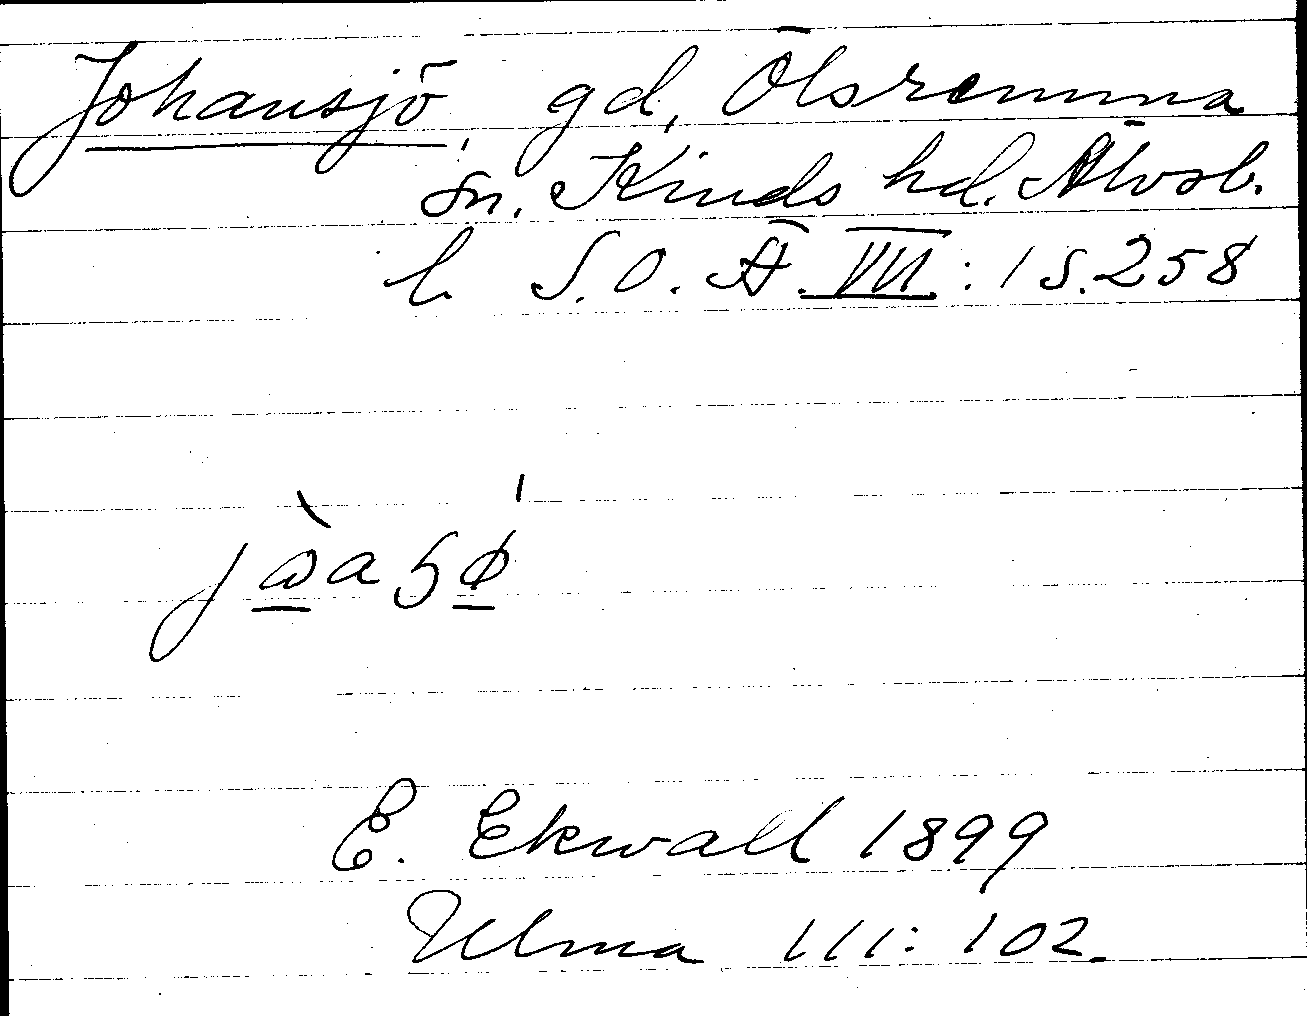 Johansjö, gd, Ölsremma
sn. Kinds hd. Älvsb.
l. S.O.Ä. VII: 1 s. 258
E. Ekwall 1899
Ulma 111: 102.